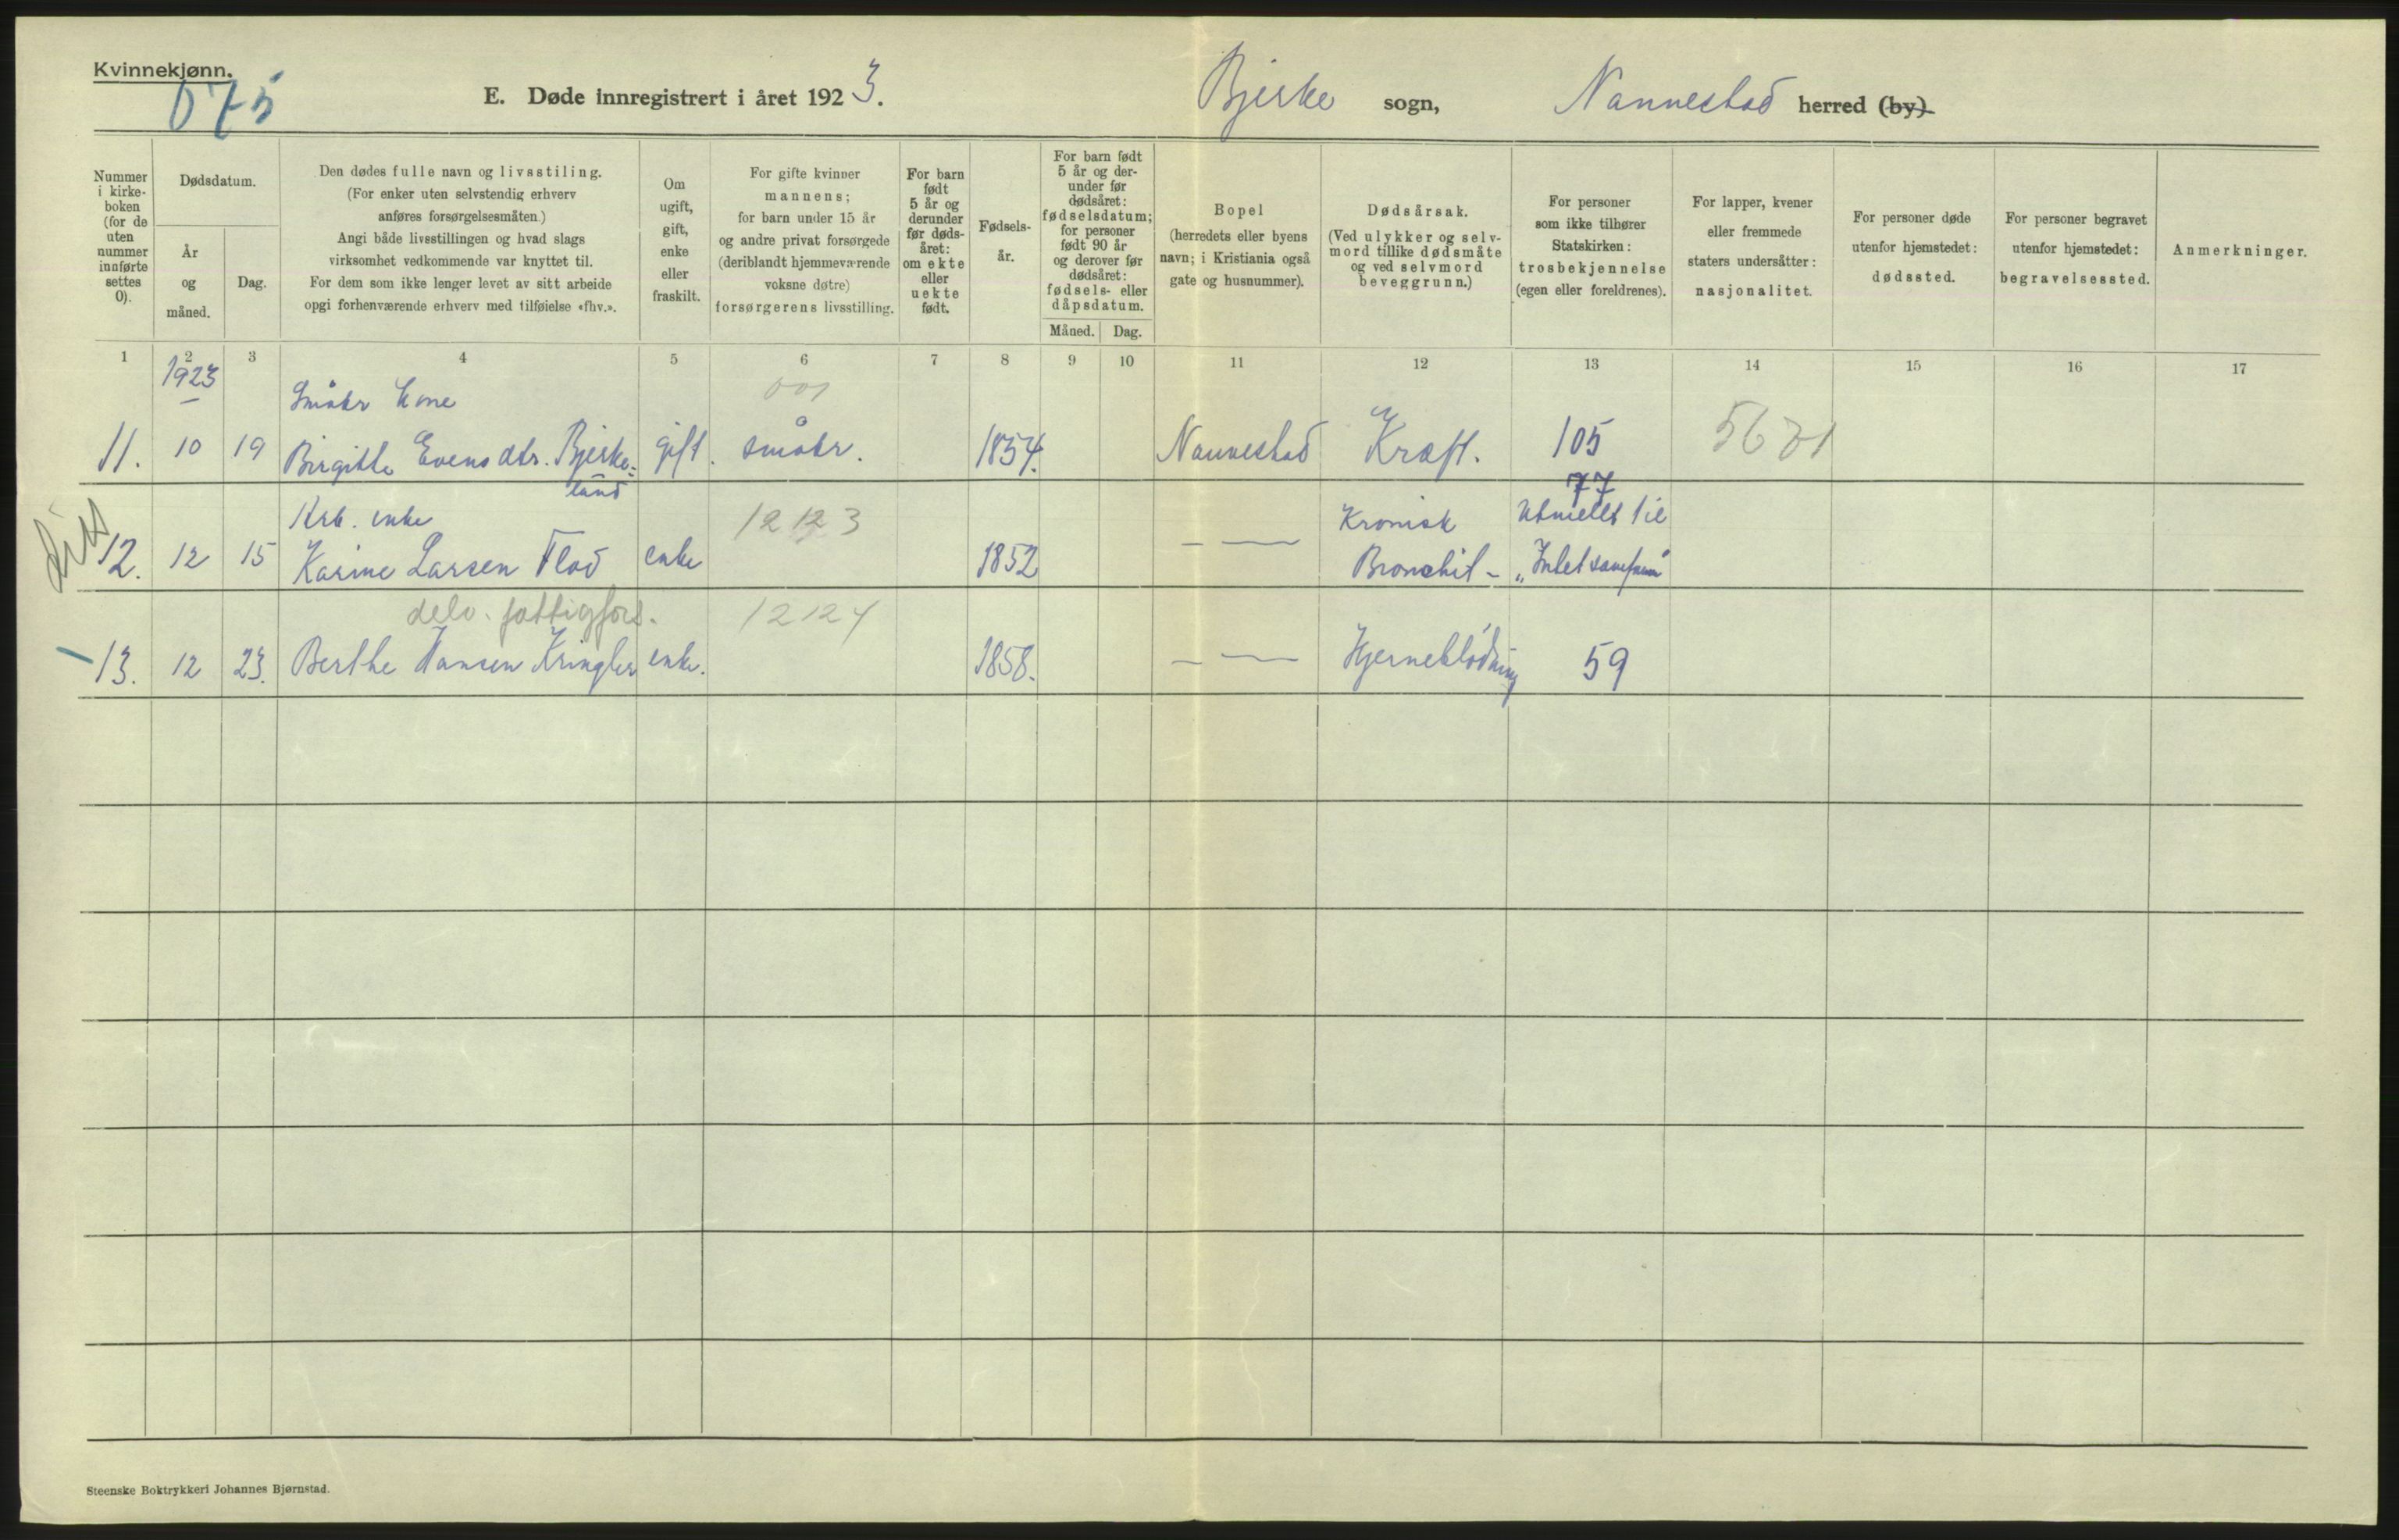 Kvinnekjønn.
075
E. Døde innregistrert i året 1923.
Bjerke sogn, Nannestad herred (by)
Nummer i kirkeboken (for de uten nummer innførte settes 0).
Dødsdatum.
År og måned.
Dag.
Den dødes fulle navn og livsstiling.
(For enker uten selvstendig erhverv
anføres forsørgelsesmåten.)
Angi både livsstillingen og hvad slags
virksomhet vedkommende var knyttet til.
For dem som ikke lenger levet av sitt arbeide
opgi forhenværende erhverv med tilføielse «fhv.».
Om ugift, gift, enke eller fraskilt.
For gifte kvinner
mannens;
for barn under 15 år
og andre privat forsørgede
(deriblandt hjemmeværende
voksne døtre)
forsørgerens livsstilling.
For barn født 5 år og derunder før dødsåret: om ekte eller uekte født.
Fødselsår.
For barn født 5 år og derunder før dødsåret: fødselsdatum; for personer født 90 år og derover før dødsåret: fødsels- eller dåpsdatum.
Måned. Dag.
Bopel
(herredets eller byens
navn; i Kristiania også
gate og husnummer).
Dødsårsak.
(Ved ulykker og selv-
mord tillike dødsmåte
og ved selvmord
beveggrunn.)
For personer
som ikke tilhører
Statskirken:
trosbekjennelse
(egen eller foreldrenes).
For lapper, kvener
eller fremmede
staters undersåtter:
nasjonalitet.
For personer døde
utenfor hjemstedet:
dødssted.
For personer begravet
utenfor hjemstedet:
begravelsessted.
Anmerkninger.
1 2 3 4 5 6 7 8 9 10 11 12 13 14 15 16 17
1923
Småbr kone 001
11. 10 19 Birgitte Evensdtr. Bjerke- gift. småbr. 1854. Nannestad Kræft. 105
land
77
Krb. enke 12123 Kronisk Utmeldt til
12. 12 15 Karine Larsen Flad enke 1852 — — Bronchit -
delv. fattigfors. 12124
13. 12 23. Berthe Hansen Kringler enke. 1858. — — Hjerneblødning 59
Steenske Boktrykkeri Johannes Bjørnstad.